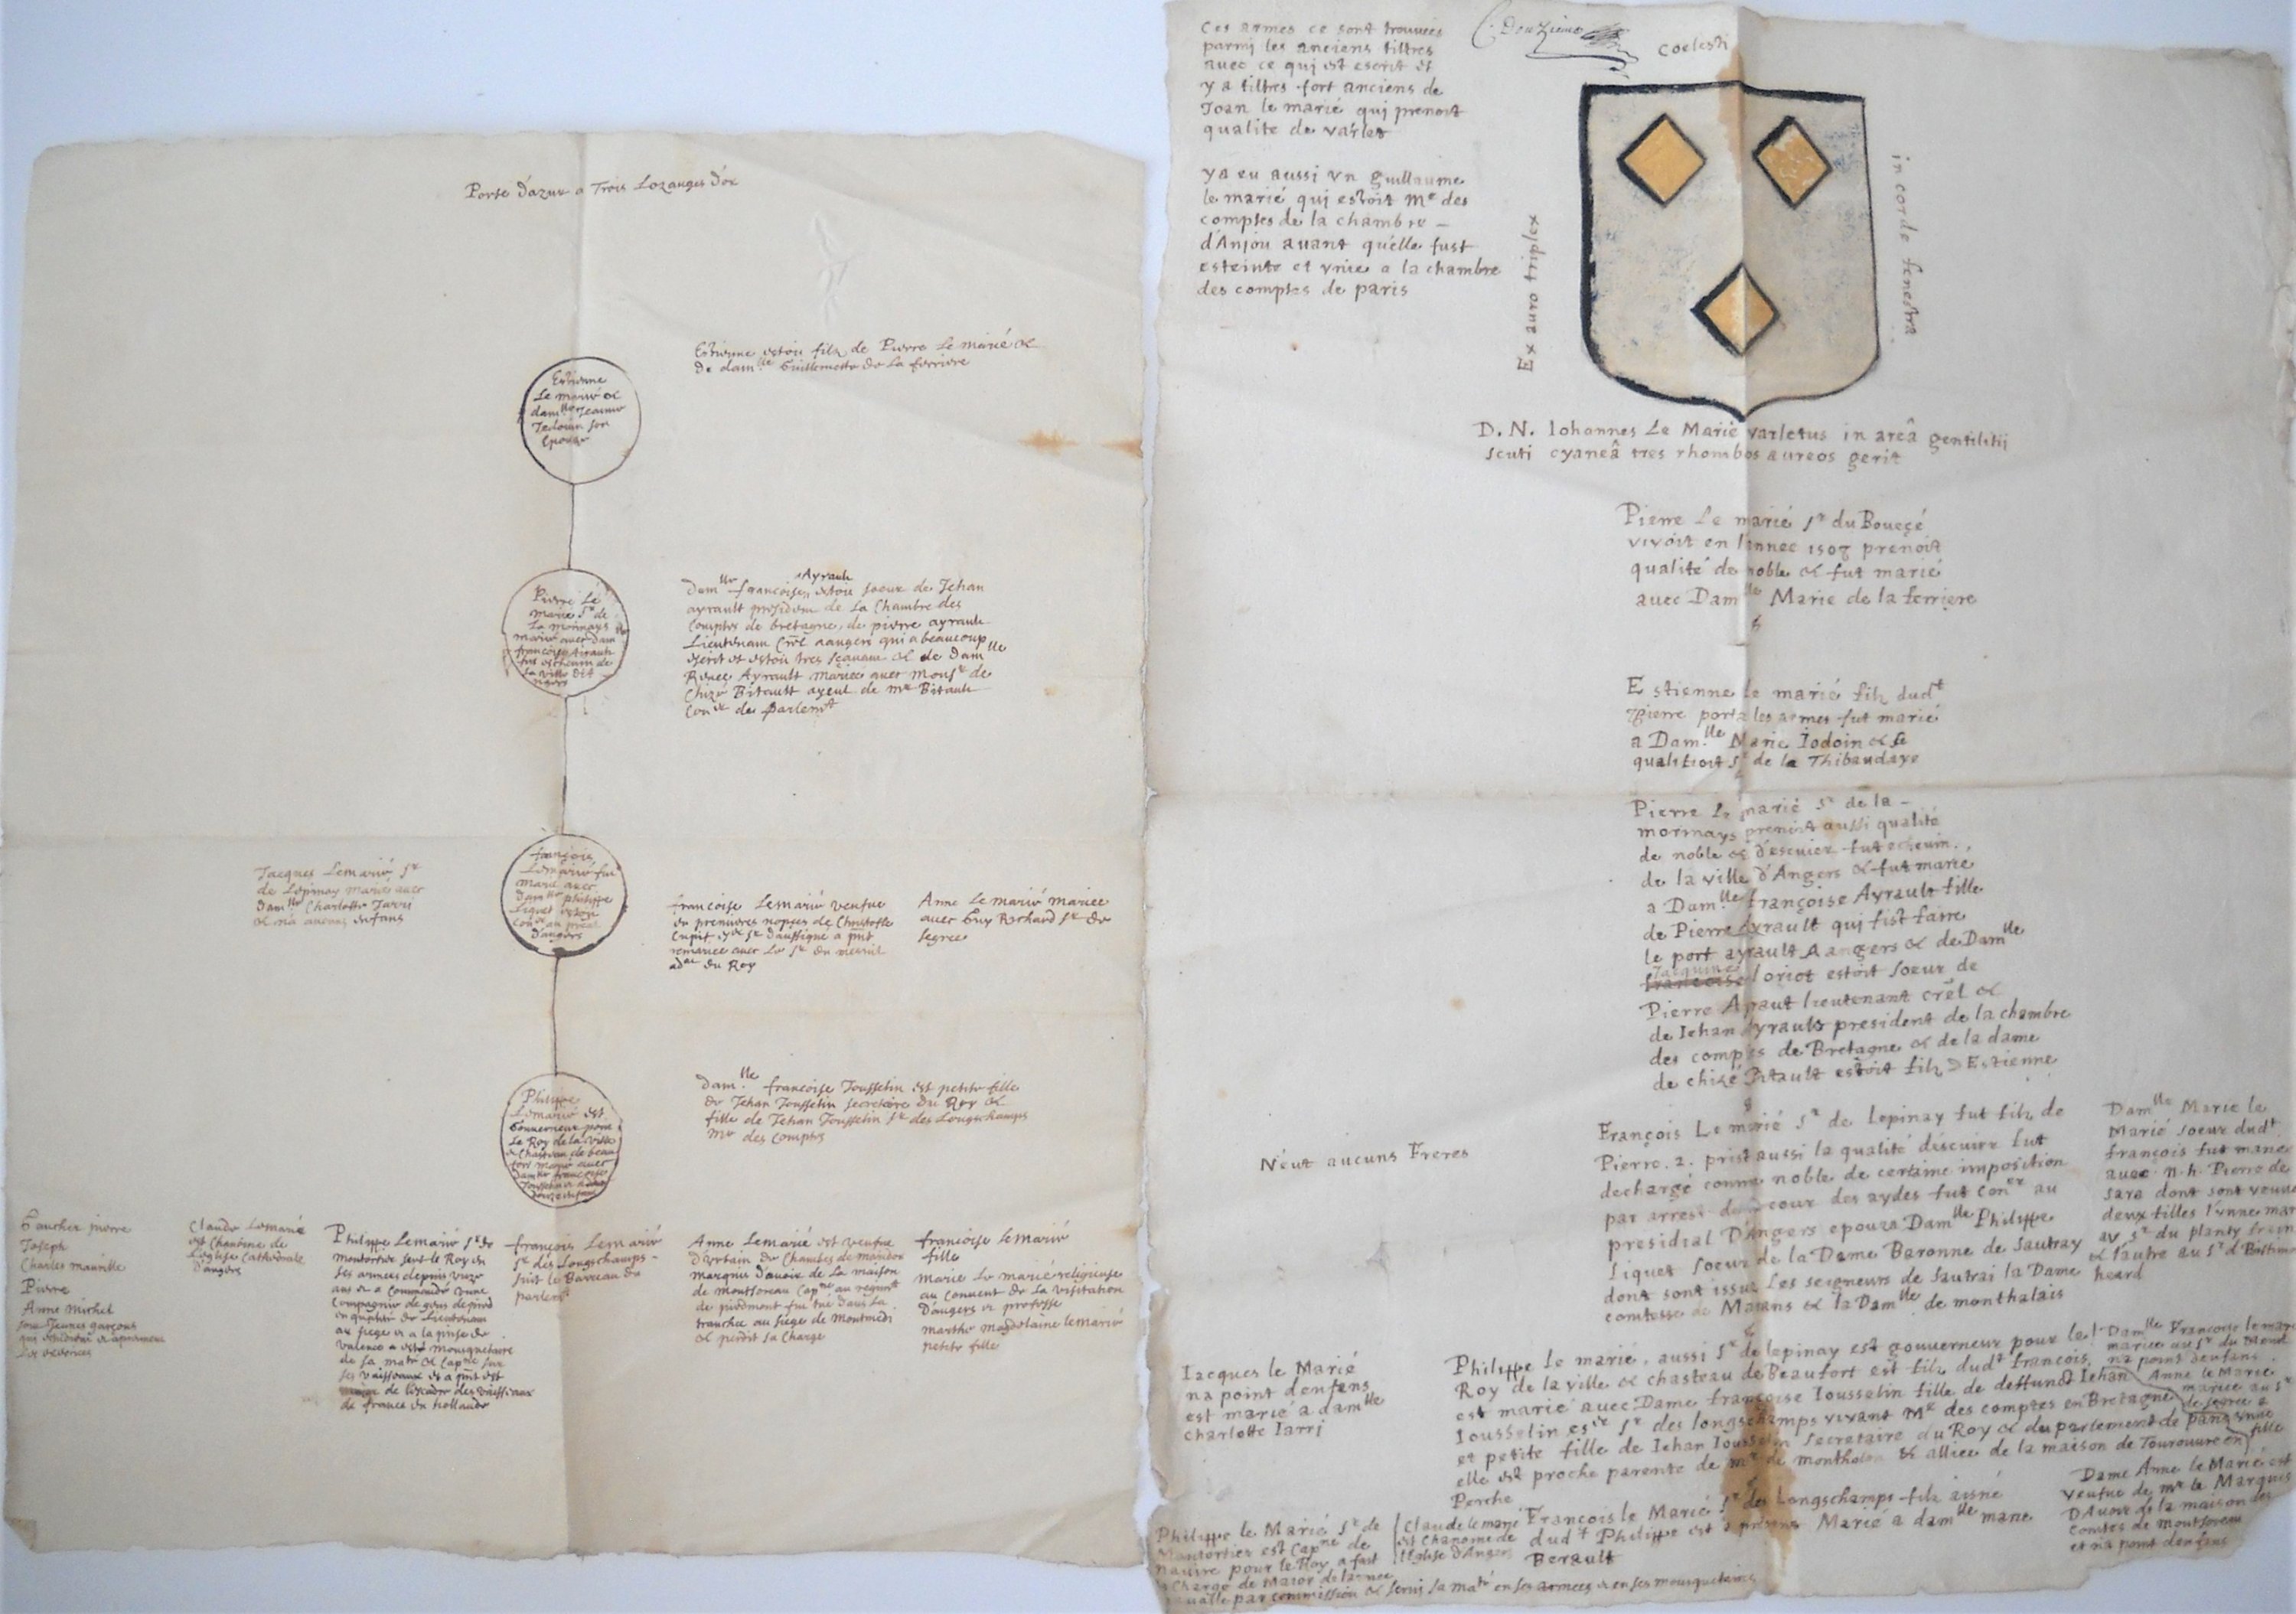 Porte d'azur a Trois Lozanges d'or
Estienne
Le marié &
dam.lle Jeanne
Jedouin son
Epouse
Estienne estoit filz de Pierre Le marié &
De dam.lle Guillemette de La ferriere
Pierre Le
marié Sr de
La mormays
marié avec dam lle
françoise Airault
fut eschevin de
La ville d'A
ngers
Dam lle françoise Ayrault estoit soeur de Jehan
ayrault president de La Chambre des
Comptes de bretagne, de pierre ayrault
Lieutenant Crel a angers qui a beaucoup
escrit et estoit tres sçavant & de Dam lle
Renee Ayrault mariée avec Monsr de
Chizé Bitault ayeul de mr Bitault
Con er de Parlem t
Jacques Lemarié, Sr
de Lépinay mariés avec
Dam lle Charlotte Jarri
& n'a aucuns enfans
françois
Lemarié fut
marié avec
dam lle philippe
Liquet estoit
Con er au presal
D'angers
françoise Lemarié veufve
en premieres nopces de Christofle
Cupif Sr d'aussigné a pnt
remariée avec Le Sr du
ad at du Roy
Anne Lemarié mariee
avec Guy Richard Sr de
segree
Philippe
Lemarié est
Gouverneur pour
Le Roy de la ville
& Chasteau de beau
fort marié avec
Dam lle françoise
Jousselin & a
douze enfans
Dam.lle françoise Jousselin est petite fille
de Jehan Jousselin secretaire du Roy &
fille de Jehan Jousselin Sr des Longschamps
Mr des Comptes
Gaucher pierre
Joseph
Charles maurille
Pierre
Anne michel
sont jeunes garçons
qui estudient & aprennent
Les exercices
Claude Lemarié
est Chanoine de
L'eglise Cathedralle
d'angers
Philippe Lemarié Sr de
montortier sert le Roy en
ses armées depuis unze
ans & a commandé une
Compagnie de gens de pied
en qualité de Lieutenant
au siege et a la prise de
valence a esté mousquetaire
de sa ma té & Cap ne sur
ses vaisseaux et a pnt est
de l'escadre des vaisseaux
de france en hollande
françois Lemarié
Sr des Longschamps
suit le Barreau du
parlem t
Anne Lemarié est veufve
d'Urbain de Chambes de
marquis d'avoir de La maison
de montsoreau Cap ne au regim t
de piedmont fut tué dans La
tranchee au siege de montmédi
& perdit sa Charge
françoise Lemarié
fille
marie Le marié religieuse
au Convent de La visitation
D'angers et professe
marthe magdelaine lemarié
petite fille
Ces armes ce sont trouvées
parmi les anciens tiltres
avec ce qui est escrit et
y a tiltres fort anciens de
Joan le marié qui prenoit
qualité de varlet
y a eu aussi un guillaume
le marié qui estoit Mr des
comptes de la chambre
d'Anjou avant qu'elle fust
esteinte et unie a la chambre
des comptes de paris
C. Douzieme
Coelesti
Ex auro triplex
in corde fenestra
D. N. Iohannes Le Marié varletus in areâ gentilitii
scuti cyaneâ tres rhombos aureos gerit
Pierre Le marié Sr du Boueçé
vivoit en l'annee 1507 prenoit
qualité de noble & fut marié
avec Dam lle Marie de la ferriere
Estienne le marié filz dud t
Pierre porta les armes fut marié
a Dam.lle Marie Iodoin & se
qualitioit Sr de la Thibaudaye
Pierre le marié Sr de la
mormays prenoit aussi qualité
de noble & d'escuier fut echevin
de la ville d'Angers & fut marié
a Dam.lle françoise Ayrault fille
de Pierre Ayrault qui fist faire
le port ayrault A angers & de Dam lle
Jacquine
françoise loriot estoit soeur de
Pierre Ayraut lieutenant crel &
de Iehan Ayrault president de la chambre
des comptes de Bretagne & de la dame
de chizé Bitault estoit filz D Estienne
N'eut aucuns Freres
François Le marié Sr de Lepinay fut filz de
Pierre. 2. prist aussi la qualité d'escuier fut
dechargé comme noble de certaine imposition
par arrest de la cour des aydes fut Con er au
presidial D'Angers epouza Dam lle Philippe
Liquet soeur de la Dame Baronne de Sautray
dont sont issus Les seigneurs de Sautrai la Dame
comtesse de Matans & la Dam lle de monthalais
Dam lle Marie le
Marié soeur dud t
françois fut mariee
avec n. h. Pierre de
Sara dont sont venues
deux filles l'unne mar
au Sr du planty
& l'autre au Sr d
heard
Iacques le Marié
na point d'enfens
est marié a dam lle
charlotte Iarri
Philippe le marié, aussi Sr de lepinay est gouverneur pour le
Roy de la ville & chasteau de Beaufort est filz dud t françois,
est marié avec Dame françoise Iousselin fille de deffunct Iehan
Iousselin es er Sr des longschamps vivant Mr des comptes en Bretagne
et petite fille de Iehan Iousselin Secretaire du Roy & du parlement de
elle est proche parente de mr de montholon & alliee de la maison de Tourouvre en
Perche
Dam lle Françoise le marié
mariee au Sr du
na point d'enfans
Anne le Marié
mariee au Sr
de segree a
unne
fille
Philippe le Marié Sr de
Montortier est Cap ne de
navire pour le Roy a fait
la Charge de Major de l'armee
navalle par commission & servi sa ma té en ses armees & en ses mousquetaires
Claude le marié
est Chanoine de
l'Eglise d'Angers
François le Marié Sr des Longschamps filz aisné
dud t Philippe est a present Marié a dam lle marie
Berault
Dame Anne le Marié est
veufve de mr le Marquis
D'Avoir de la maison des
Comtes de montsoreau
et n'a point d'enfans